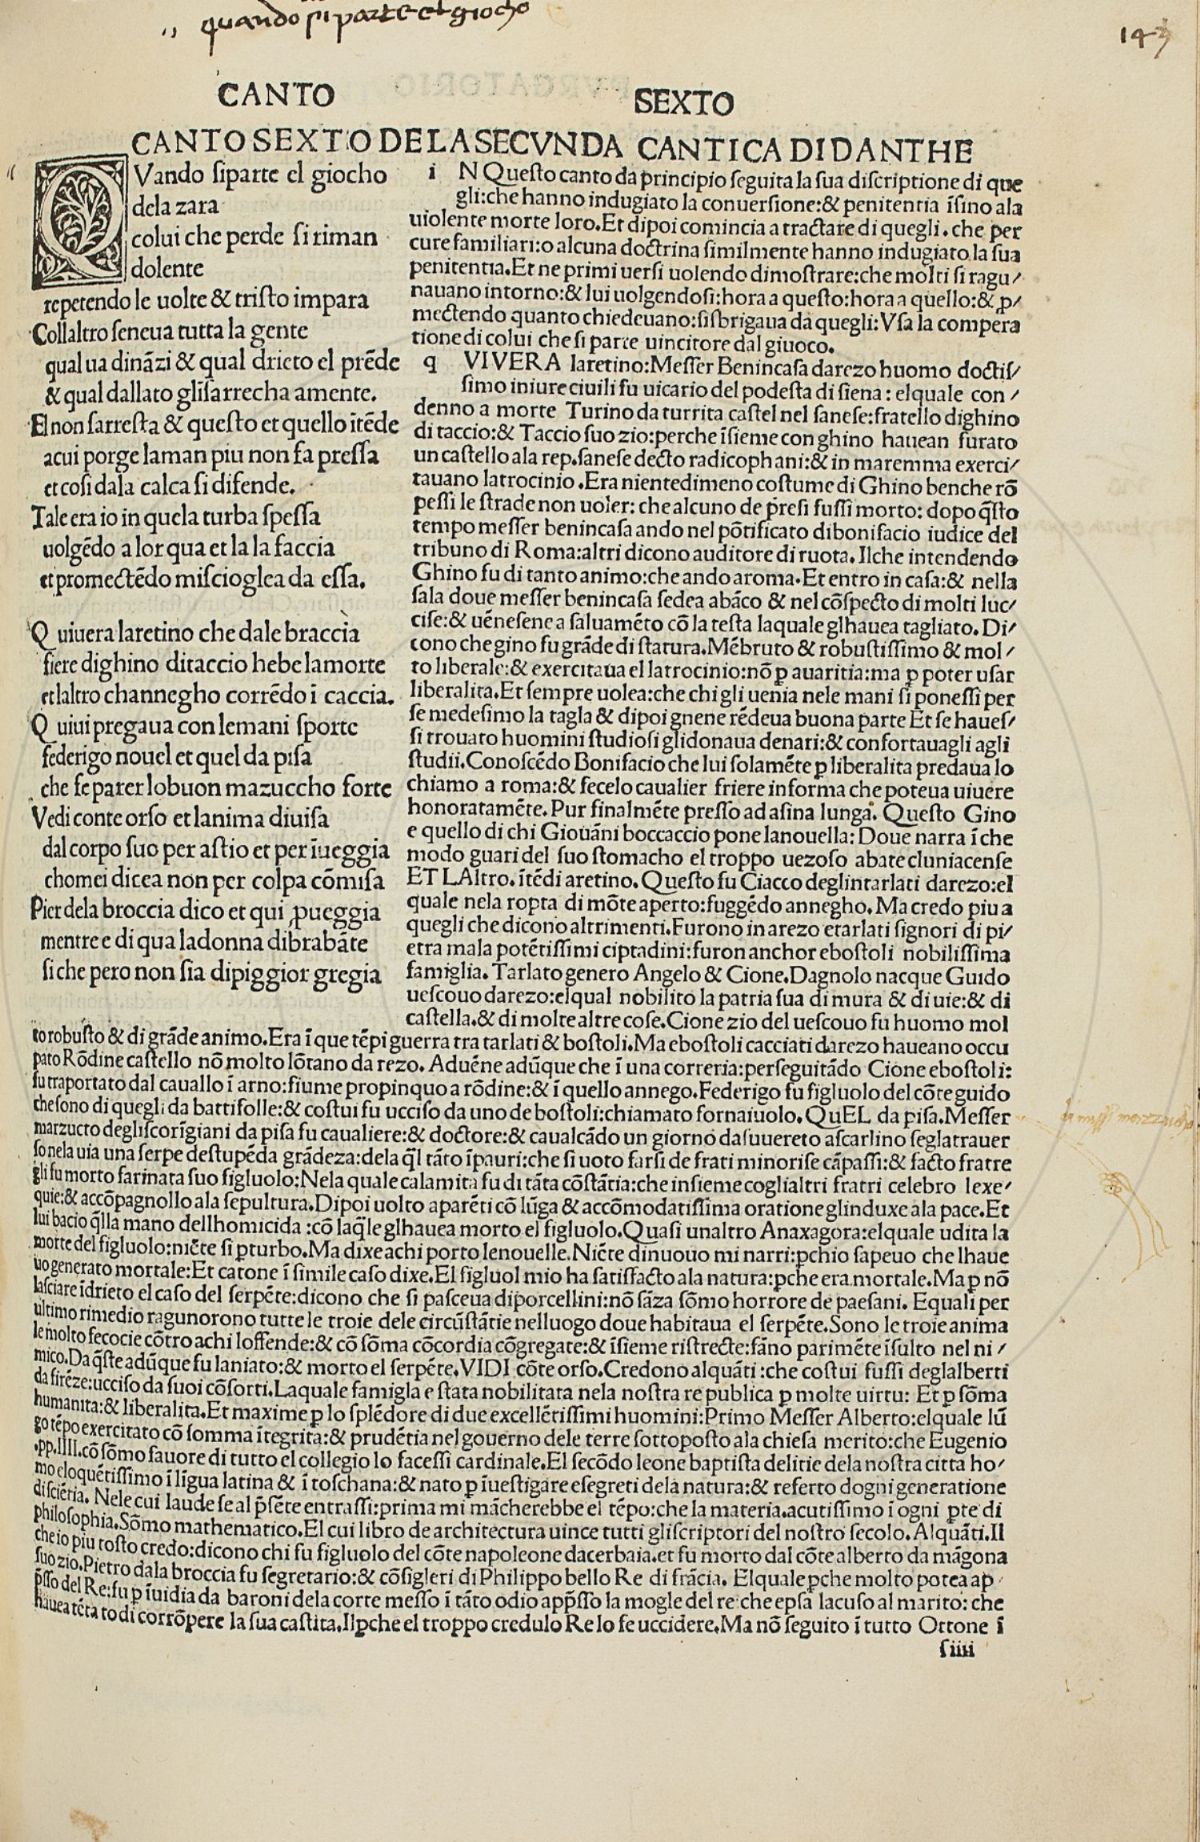 „ quando si parte el giocho
CANTO SEXTO
CANTO SEXTO DE LA SECVNDA CANTICA DI DANTHE
QVando siparte el giocho
dela zara
colui che perde si riman
dolente
repetendo le uolte & tristo impara
Collaltro seneua tutta la gente
qual ua dinãzi & qual drieto el prẽde
& qual dallato glisarrecha amente.
El non sarresta & questo et quello ĩtẽde
acui porge laman piu non fa pressa
et cosi dala calca si difende.
Tale era io in quela turba spessa
uolgẽdo a lor qua et la la faccia
et promectẽdo misciogliea da essa.
Quiuera laretino che dale braccia
fiere dighino ditaccio hebe lamorte
et laltro channegho corrẽdo ĩ caccia.
Quiui pregaua con lemani sporte
federigo nouel et quel da pisa
che fe parer lobuon mazuccho forte
Vedi conte orso et lanima diuisa
dal corpo suo per astio et per ĩueggia
chomei dicea non per colpa cõmisa
Pier dela broccia dico et qui ꝓueggia
mentre e di qua ladonna dibrabãte
siche pero non sia dipiggior gregia
i N Questo canto da principio seguita la sua discriptione di que
gli:che hanno indugiato la conuersione:& penitentia ĩsino ala
uiolente morte loro.Et dipoi comincia a tractare di quegli.che per
cure familiari:o alcuna doctrina similmente hanno indugiato la sua
penitentia.Et ne primi uersi uolendo dimostrare:che molti si ragu/
nauano intorno:& lui uolgendosi:hora a questo:hora a quello:& ꝓ/
mectendo quanto chiedeuano:sisbrigaua da quegli:Vsa la compera
tione di colui che si parte uincitore dal giuoco.
q VIVERA laretino:Messer Benincasa darezo huomo doctis/
simo iniure ciuili fu uicario del podesta di siena:elquale con/
denno a morte Turino da turrita castel nel sanese:fratello dighino
di taccio:& Taccio suo zio:perche ĩsieme con ghino hauean furato
un castello ala rep.sanese decto radicophani:& in maremma exerci/
tauano latrocinio.Era nientedimeno costume di Ghino benche rõ
pessi le strade non uoler:che alcuno de presi fussi morto:dopo q̃sto
tempo messer benincasa ando nel põtificato dibonifacio iudice del
tribuno di Roma:altri dicono auditore di ruota.Ilche intendendo
Ghino fu di tanto animo:che ando aroma.Et entro in casa:& nella
sala doue messer benincasa sedea abãco & nel cõspecto di molti luc/
cise:& uẽnesene a saluamẽto cõ la testa laquale glhauea tagliato.Di/
cono che gino fu grãde di statura.Mẽbruto & robustissimo & mol/
to liberale:& exercitaua el latrocinio:nõ ꝑ auaritia:ma ꝑ poter usar
liberalita.Et sempre uolea:che chi gli uenia nele mani si ponessi per
se medesimo la tagla & dipoi gnene rẽdeua buona parte Et se haues/
si trouato huomini studiosi glidonaua denari:& confortauagli agli
studii.Conoscẽdo Bonifacio che lui solamẽte ꝑ liberalita predaua lo
chiamo a roma:& fecelo caualier friere informa che poteua uiuere
honoratamẽte.Pur finalmẽte presso ad asina lunga.Questo Gino
e quello di chi Giouãni boccaccio pone lanouella:Doue narra ĩ che
modo guari del suo stomacho el troppo uezoso abate cluniacense
ET LAltro.ĩtẽdi aretino.Questo fu Ciacco deglintarlati darezo:el
quale nela ropta di mõte aperto:fuggẽdo annegho.Ma credo piu a
quegli che dicono altrimenti.Furono in arezo etarlati signori di pi/
etra mala potẽtissimi ciptadini:furon anchor ebostoli nobilissima
famiglia.Tarlato genero Angelo & Cione.Dagnolo nacque Guido
uescouo darezo:elqual nobilito la patria sua di mura & di uie:& di
castella.& di molte altre cose.Cione zio del uescouo fu huomo mol
to robusto & di grãde animo.Era ĩ que tẽpi guerra tra tarlati & bostoli.Ma ebostoli cacciati darezo haueano occu
pato Rõdine castello nõ molto lõtano da rezo.Aduẽne adũque che ĩ una correria:perseguitãdo Cione ebostoli:
fu traportato dal cauallo ĩ arno:fiume propinquo a rõdine:& ĩ quello annego.Federigo fu figluolo del cõte guido
che sono di quegli da battifolle:& costui fu ucciso da uno de bostoli:chiamato fornaiuolo.QuEL da pisa.Messer
marzucto degliscorĩgiani da pisa fu caualiere:& doctore:& caualcãdo un giorno dasuuereto ascarlino seglatrauer
so nela uia una serpe destupẽda grãdeza:dela q̃l tãto ĩpauri:che si uoto farsi de frati minori se cãpassi:& facto fratre
gli fu morto farinata suo figluolo:Nela quale calamita fu di tãta cõstãtia:che insieme coglialtri fratri celebro lexe/
quie:& accõpagnollo ala sepultura.Dipoi uolto aparẽti cõ lũga & accõmodatissima oratione glinduxe ala pace.Et
lui bacio q̃lla mano dellhomicida:cõ laq̃le glhauea morto el figluolo.Quasi unaltro Anaxagora:elquale udita la
morte del figluolo:niẽte si ꝑturbo.Ma dixe achi porto lenouelle.Niẽte dinuouo mi narri:ꝑchio sapeuo che lhaue
uo generato mortale:Et catone ĩ simile caso dixe.El figluol mio ha satisfacto ala natura:ꝑche era mortale.Ma ꝑ nõ
lasciare ĩdrieto el caso del serpẽte:dicono che si pasceua diporcellini:nõ sãza sõmo horrore de paesani.Equali per
ultimo rimedio ragunorono tutte le troie dele circũstãtie nelluogo doue habitaua el serpẽte.Sono le troie anima
le molto fecocie cõtro achi loffende:& cõ sõma cõcordia cõgregate:& ĩsieme ristrecte:fãno parimẽte ĩsulto nel ni/
mico.Da q̃ste adũque fu laniato:& morto el serpẽte.VIDI cõte orso.Credono alquãti:che costui fussi deglalberti
da firẽze:ucciso da suoi cõsorti.Laquale famigla e stata nobilitata nela nostra re publica ꝑ molte uirtu:Et ꝑ sõma
humanita:& liberalita.Et maxime ꝑ lo splẽdore di due excellẽtissimi huomini:Primo Messer Alberto:elquale lũ
go tẽpo exercitato cõ somma ĩtegrita:& prudẽtia nel gouerno dele terre sottoposto ala chiesa merito:che Eugenio
.pp.IIII.cõ sõmo fauore di tutto el collegio lo facessi cardinale.El secõdo leone baptista delitie dela nostra citta ho/
mo eloquẽtissimo ĩ lĩgua latina & ĩ toschana:& nato ꝑ ĩuestigare esegreti dela natura:& referto dogni generatione
di sciẽtia.Nele cui laude se al p̃sẽte entrassi:prima mi mãcherebbe el tẽpo:che la materia.acutissimo ĩ ogni ꝑte di
philosophia.Sõmo mathematico.El cui libro de architectura uince tutti gliscriptori del nostro secolo.Alquãti.Il
che io piu tosto credo:dicono chi fu figluolo del cõte napoleone dacerbaia.et fu morto dal cõte alberto da mãgona
suo zio.Pietro dala broccia fu segretario:& cõsigleri di Philippo bello Re di frãcia.Elquale ꝑche molto potea ap
p̃sso del Re:fu ꝑ ĩuidia da baroni dela corte messo ĩ tãto odio app̃sso la mogle del re:che epsa lacuso al marito:che
hauea tẽtato di corrõpere la sua castita.Ilꝑche el troppo credulo Re lo fe uccidere.Ma nõ seguito ĩ tutto Ottone ĩ
siiii